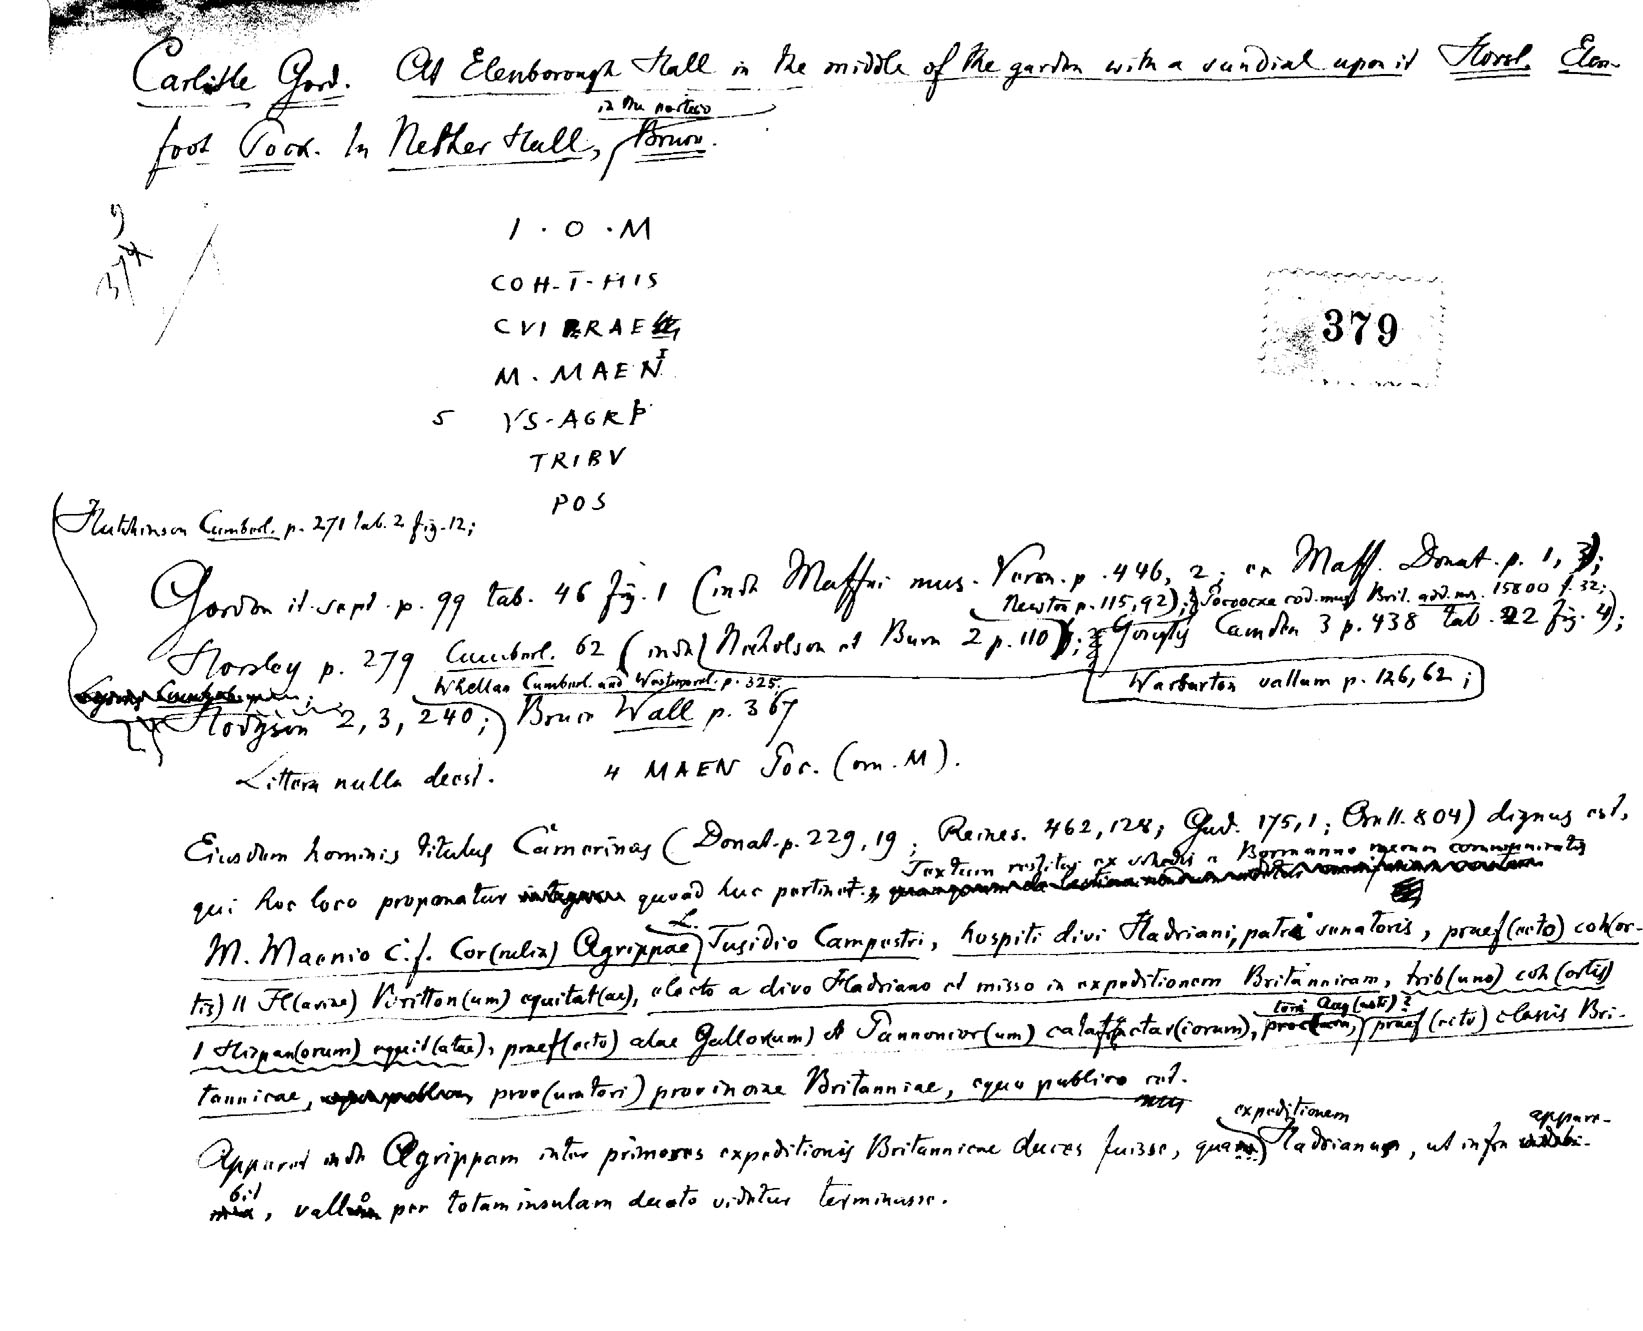 Carlisle Gord. At Elenborough Hall in the middle of the garden with a sundial upon it Horsl. Elen-
in the portico
foot Pock. In Nether Hall, Bruce.
9
374
I · O · M
COH · I · HIS
CVI PRAE
M · MAEN I
5 VS · AGRIP
TRIBV
POS
379
Hutchinson Cumberl. p. 271 tab. 2 fig. 12;
Gordon it. sept. p. 99 tab. 46 fig. 1 (inde Maffei mus. Veron. p. 446, 2; ex Maff. Donat. p. 1, 3);
Newton p. 115, 92); Pococke cod. mus. Brit. add. ms. 15800 f. 32;
Horsley p. 279 Cumberl. 62 (inde Nicholson et Burn 2 p. 110); Gough's Camden 3 p. 438 tab. 22 fig. 4);
Whellan Cumberl. and Westmorel. p. 325;
Warburton vallum p. 126, 62;
Hodgson 2, 3, 240; Bruce Wall p. 367
Littera nulla deest. 4 MAEN Poc. (om. M).
Eiusdem hominis titulus Camerinas (Donat. p. 229, 19; Reines. 462, 128; Gud. 175, 1; Orell. 804) dignus est,
Textum restitui ex schedis a Bormanno mecum communicatis
qui hoc loco proponatur quoad huc pertinet.
M. Maenio C. f. Cor(nelia) Agrippae L. Tusidio Campestri, hospiti divi Hadriani, patri senatoris, praef(ecto) cohor-
tis) II Fl(aviae) Britton(um) equitat(ae), electo a divo Hadriano et misso in expeditionem Britannicam, trib(uno) coh(ortis)
tori Aug(usti)?
I Hispan(orum) equit(atae), praef(ecto) alae Gallorum) et Pannonior(um) catafractar(iorum), proc, praef(ecto) classis Bri-
tannicae, proc(uratori) provinciae Britanniae, equo publico cet.
expeditionem
appare-
Apparet inde Agrippam inter primores expeditionis Britannicae duces fuisse, quam Hadrianus, ut infra
bit, vallo per totam insulam ducto videtur terminasse.